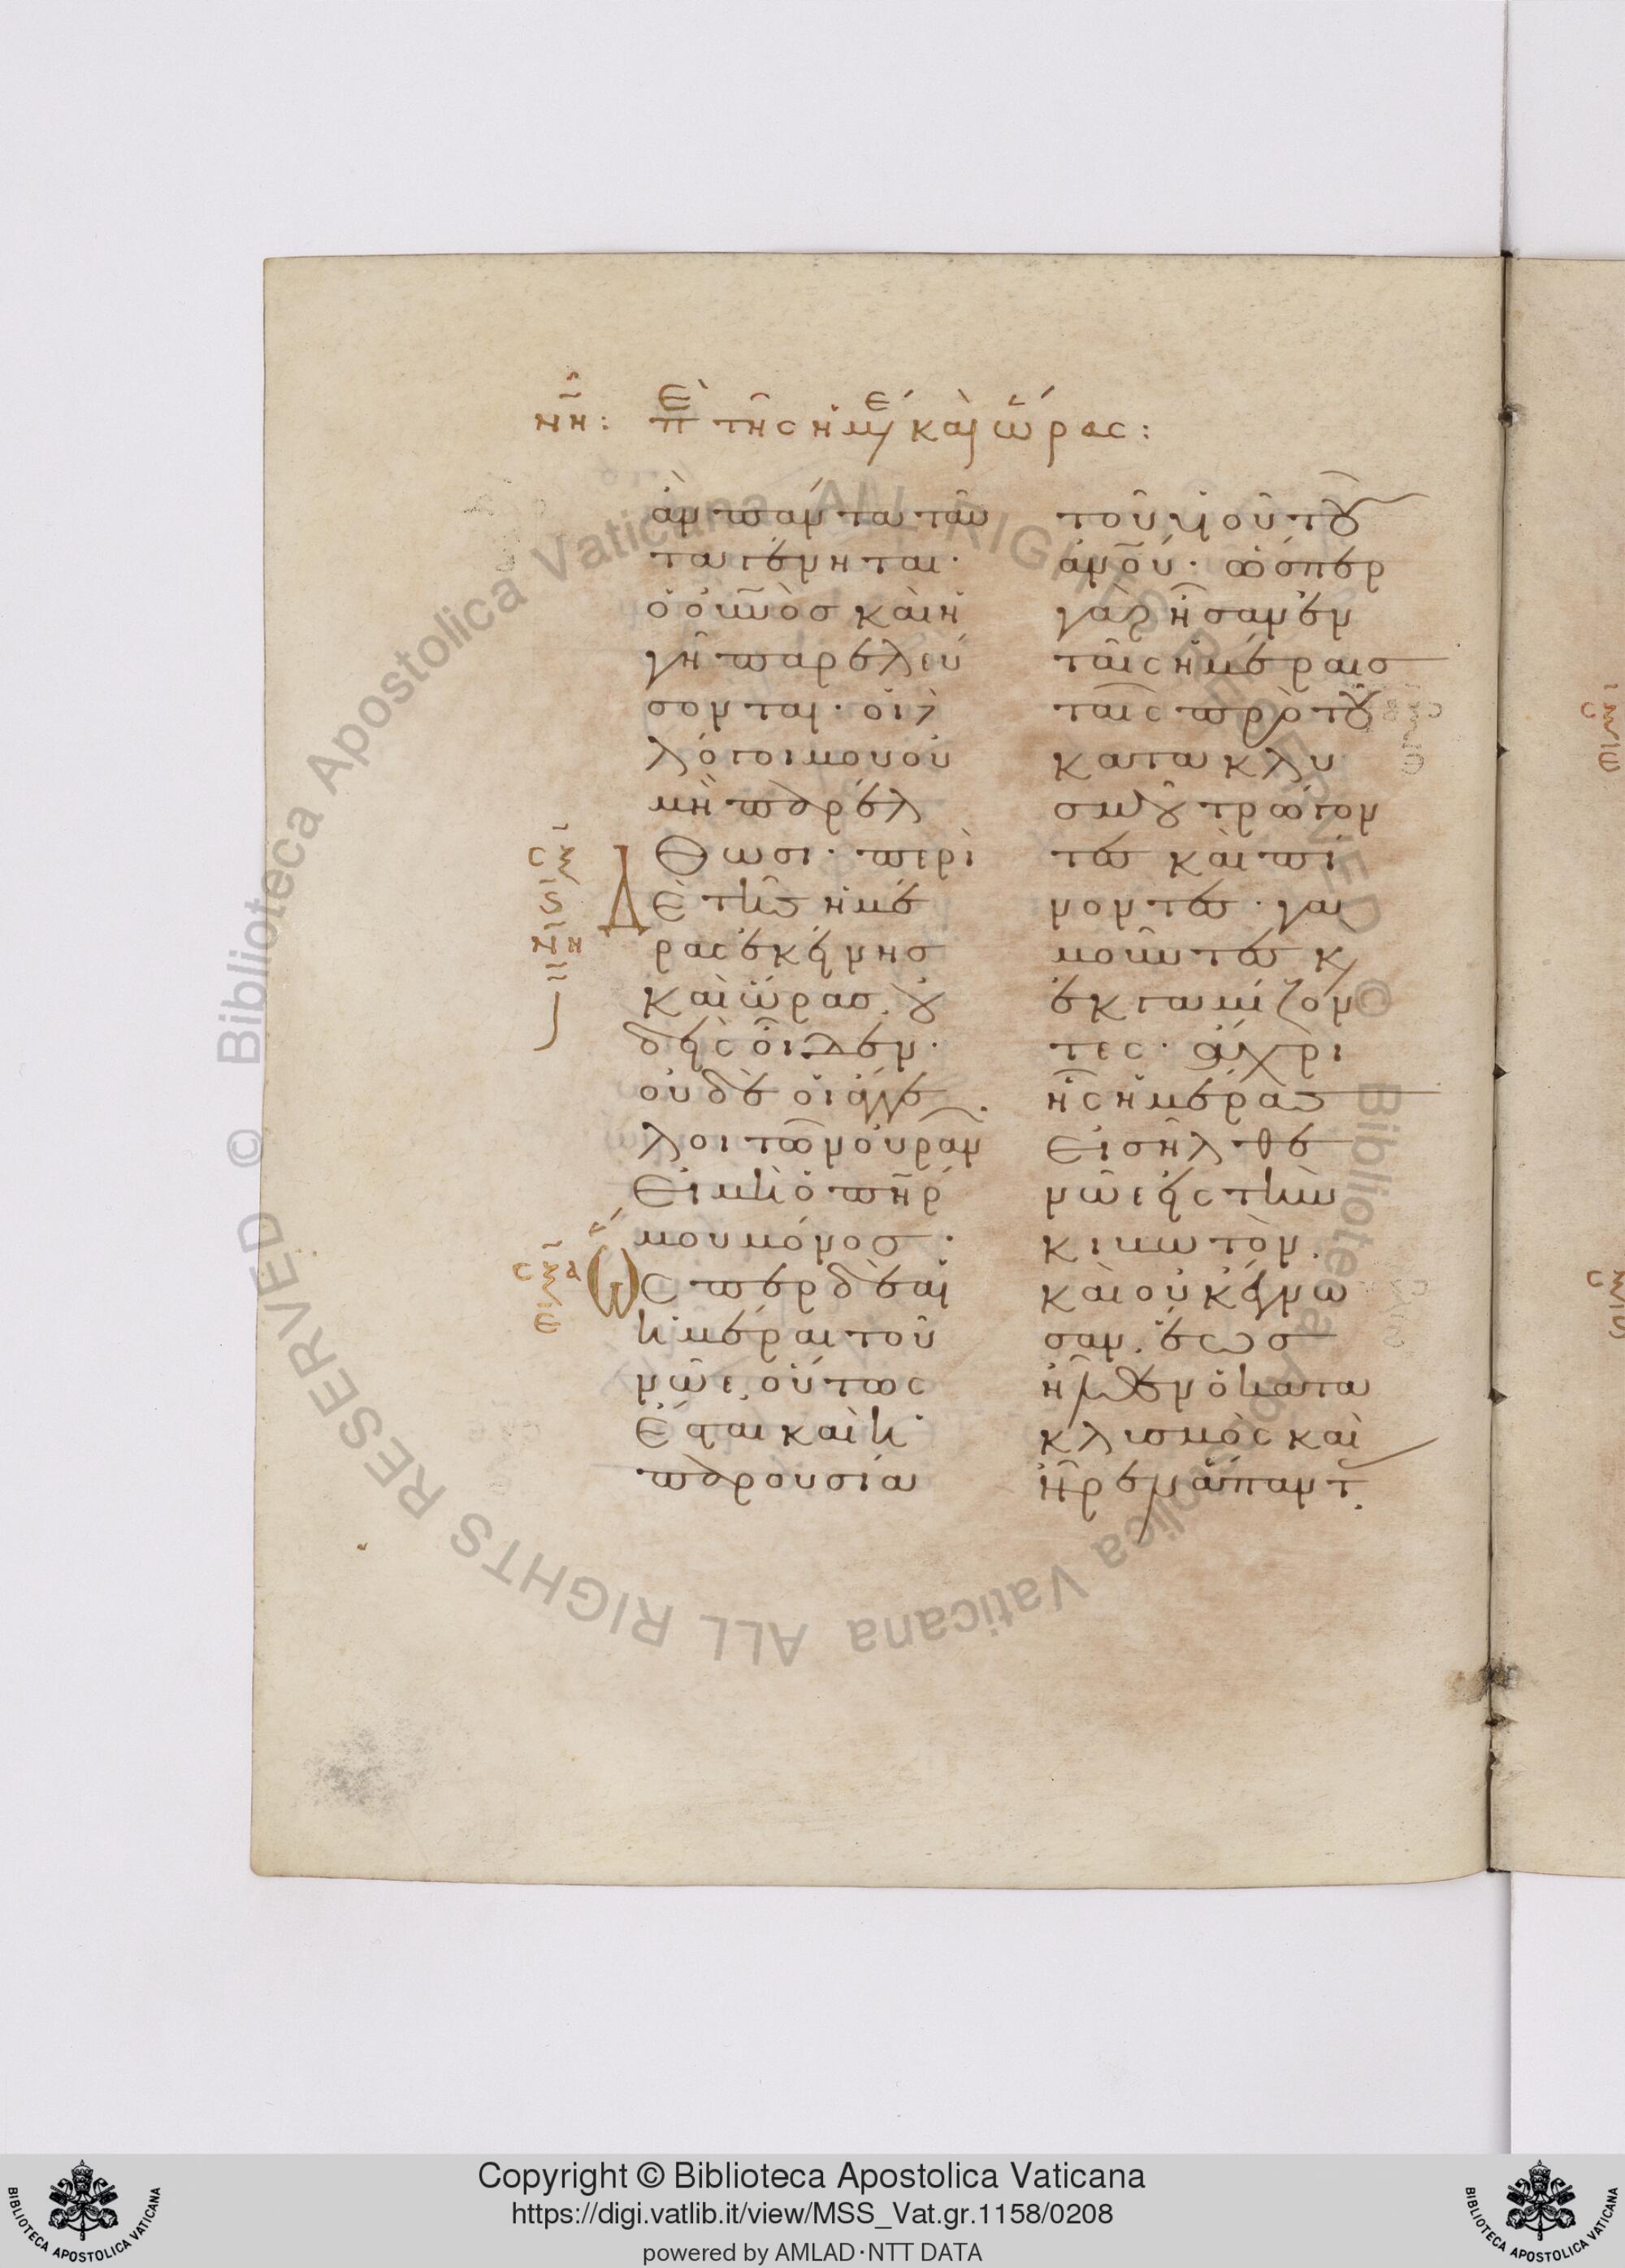 νη: πε τῆς ἡμέ καὶ ὥρας:
ἂν πάντα ταῦ
τα γένηται·
ὁ οὐνὸσ καὶ ἡ
γῆ παρελεύ
σονται· οἱ λ
λόγοι μου οὐ
μὴ παρέλ
θωσι· περὶ
Δὲ τῆς ἡμέ
ρας ἐκείνησ
καὶ ὥρασ. οὐ
δεὶς οἶδεν·
οὐδὲ οἱ ἄγγε
λοι τῶν οὐραν.
Εἰ μὴ ὁ πῆρ
μου μόνοσ·
Ὥσπερ δὲ αἱ
ἡμέραι τοῦ
νῶε, οὕτως
ἔσται καὶ ἡ
παρουσία
τοῦ υἱοῦ τοῦ
ἀνου· ὥσπερ
γὰρ ἦσαν ἐν
ταῖς ἡμέραισ
ταῖς πρὸ τοῦ
κατακλυ
σμοῦ τρώγον
τες καὶ πί
νοντες· γα
μοῦντες κ
ἐκγαμίζον
τες· ἄχρι
ἧς ἡμέρας
Εἰσῆλθε
νῶε εἰς τὴν
κιβωτὸν.
καὶ οὐκ ἔγνω
σαν. ἕως
ἦλθεν ὁ κατα
κλυσμὸς καὶ
ἦρεν ἅπαντ.
σξ
ς
σξα
ε
Copyright © Biblioteca Apostolica Vaticana
https://digi.vatlib.it/view/MSS_Vat.gr.1158/0208
powered by AMLAD·NTT DATA
BIBLIOTECA APOSTOLICA VATICANA
BIBLIOTECA APOSTOLICA VATICANA
© Biblioteca Apostolica Vaticana ALL RIGHTS RESERVED © Biblioteca Apostolica Vaticana ALL RIGHTS RESERVED